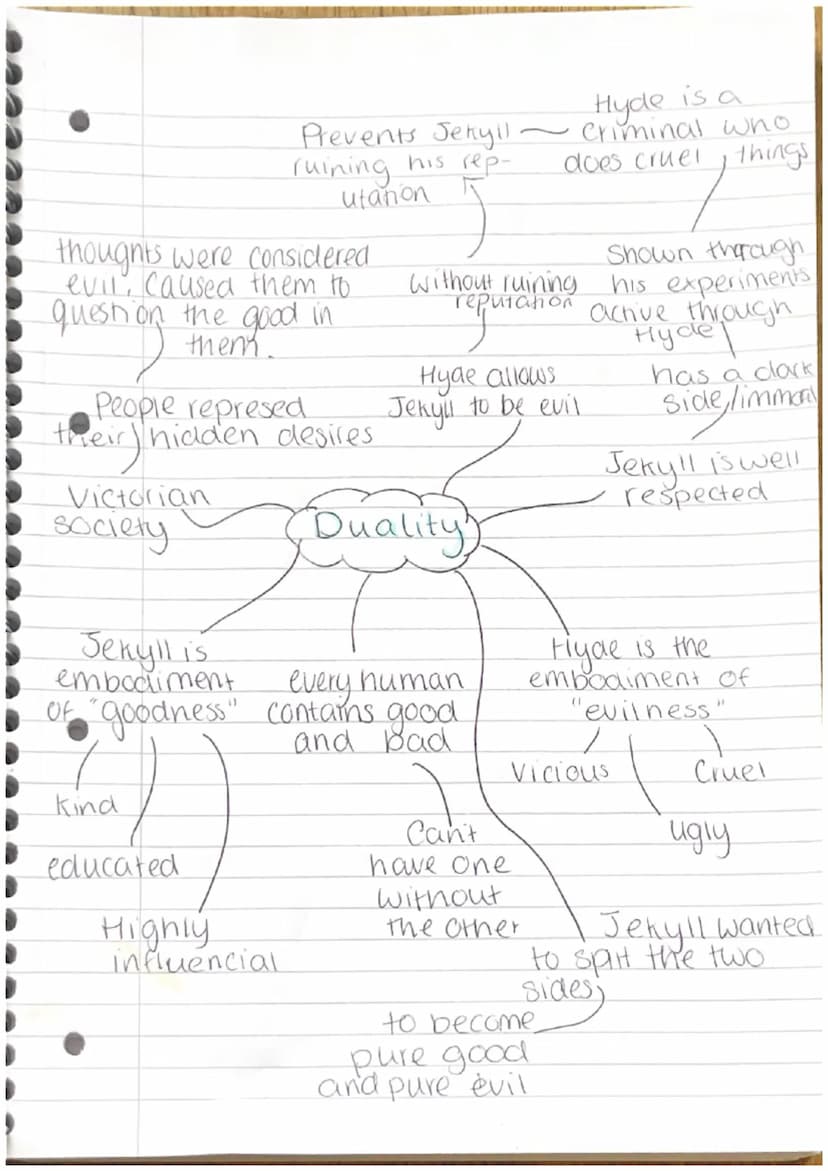 Hyde is a
criminal who
does cruel things
Prevents Jekyll
ruining his rep-
utation
Shown through
his experiments
active through
Hyde
thoughts were considered
evil. Caused them to
question the good in
them.
without ruining
reputation
Hyde allows
Jekyll to be evil
has a dark
side/immoral
People represed
their hidden desires
Jekyll is well
respected
Victorian
society
Duality
Jekyll is
embodiment
of "goodness"
every human
contains good
and bad
Hyde is the
embodiment of
"evilness"
Vicious
Cruel
Ugly
Kind
educated
Highly
influencial
Can't
have one
without
the other
Jekyll wanted
to split the two
sides
to become
pure good
and pure evil